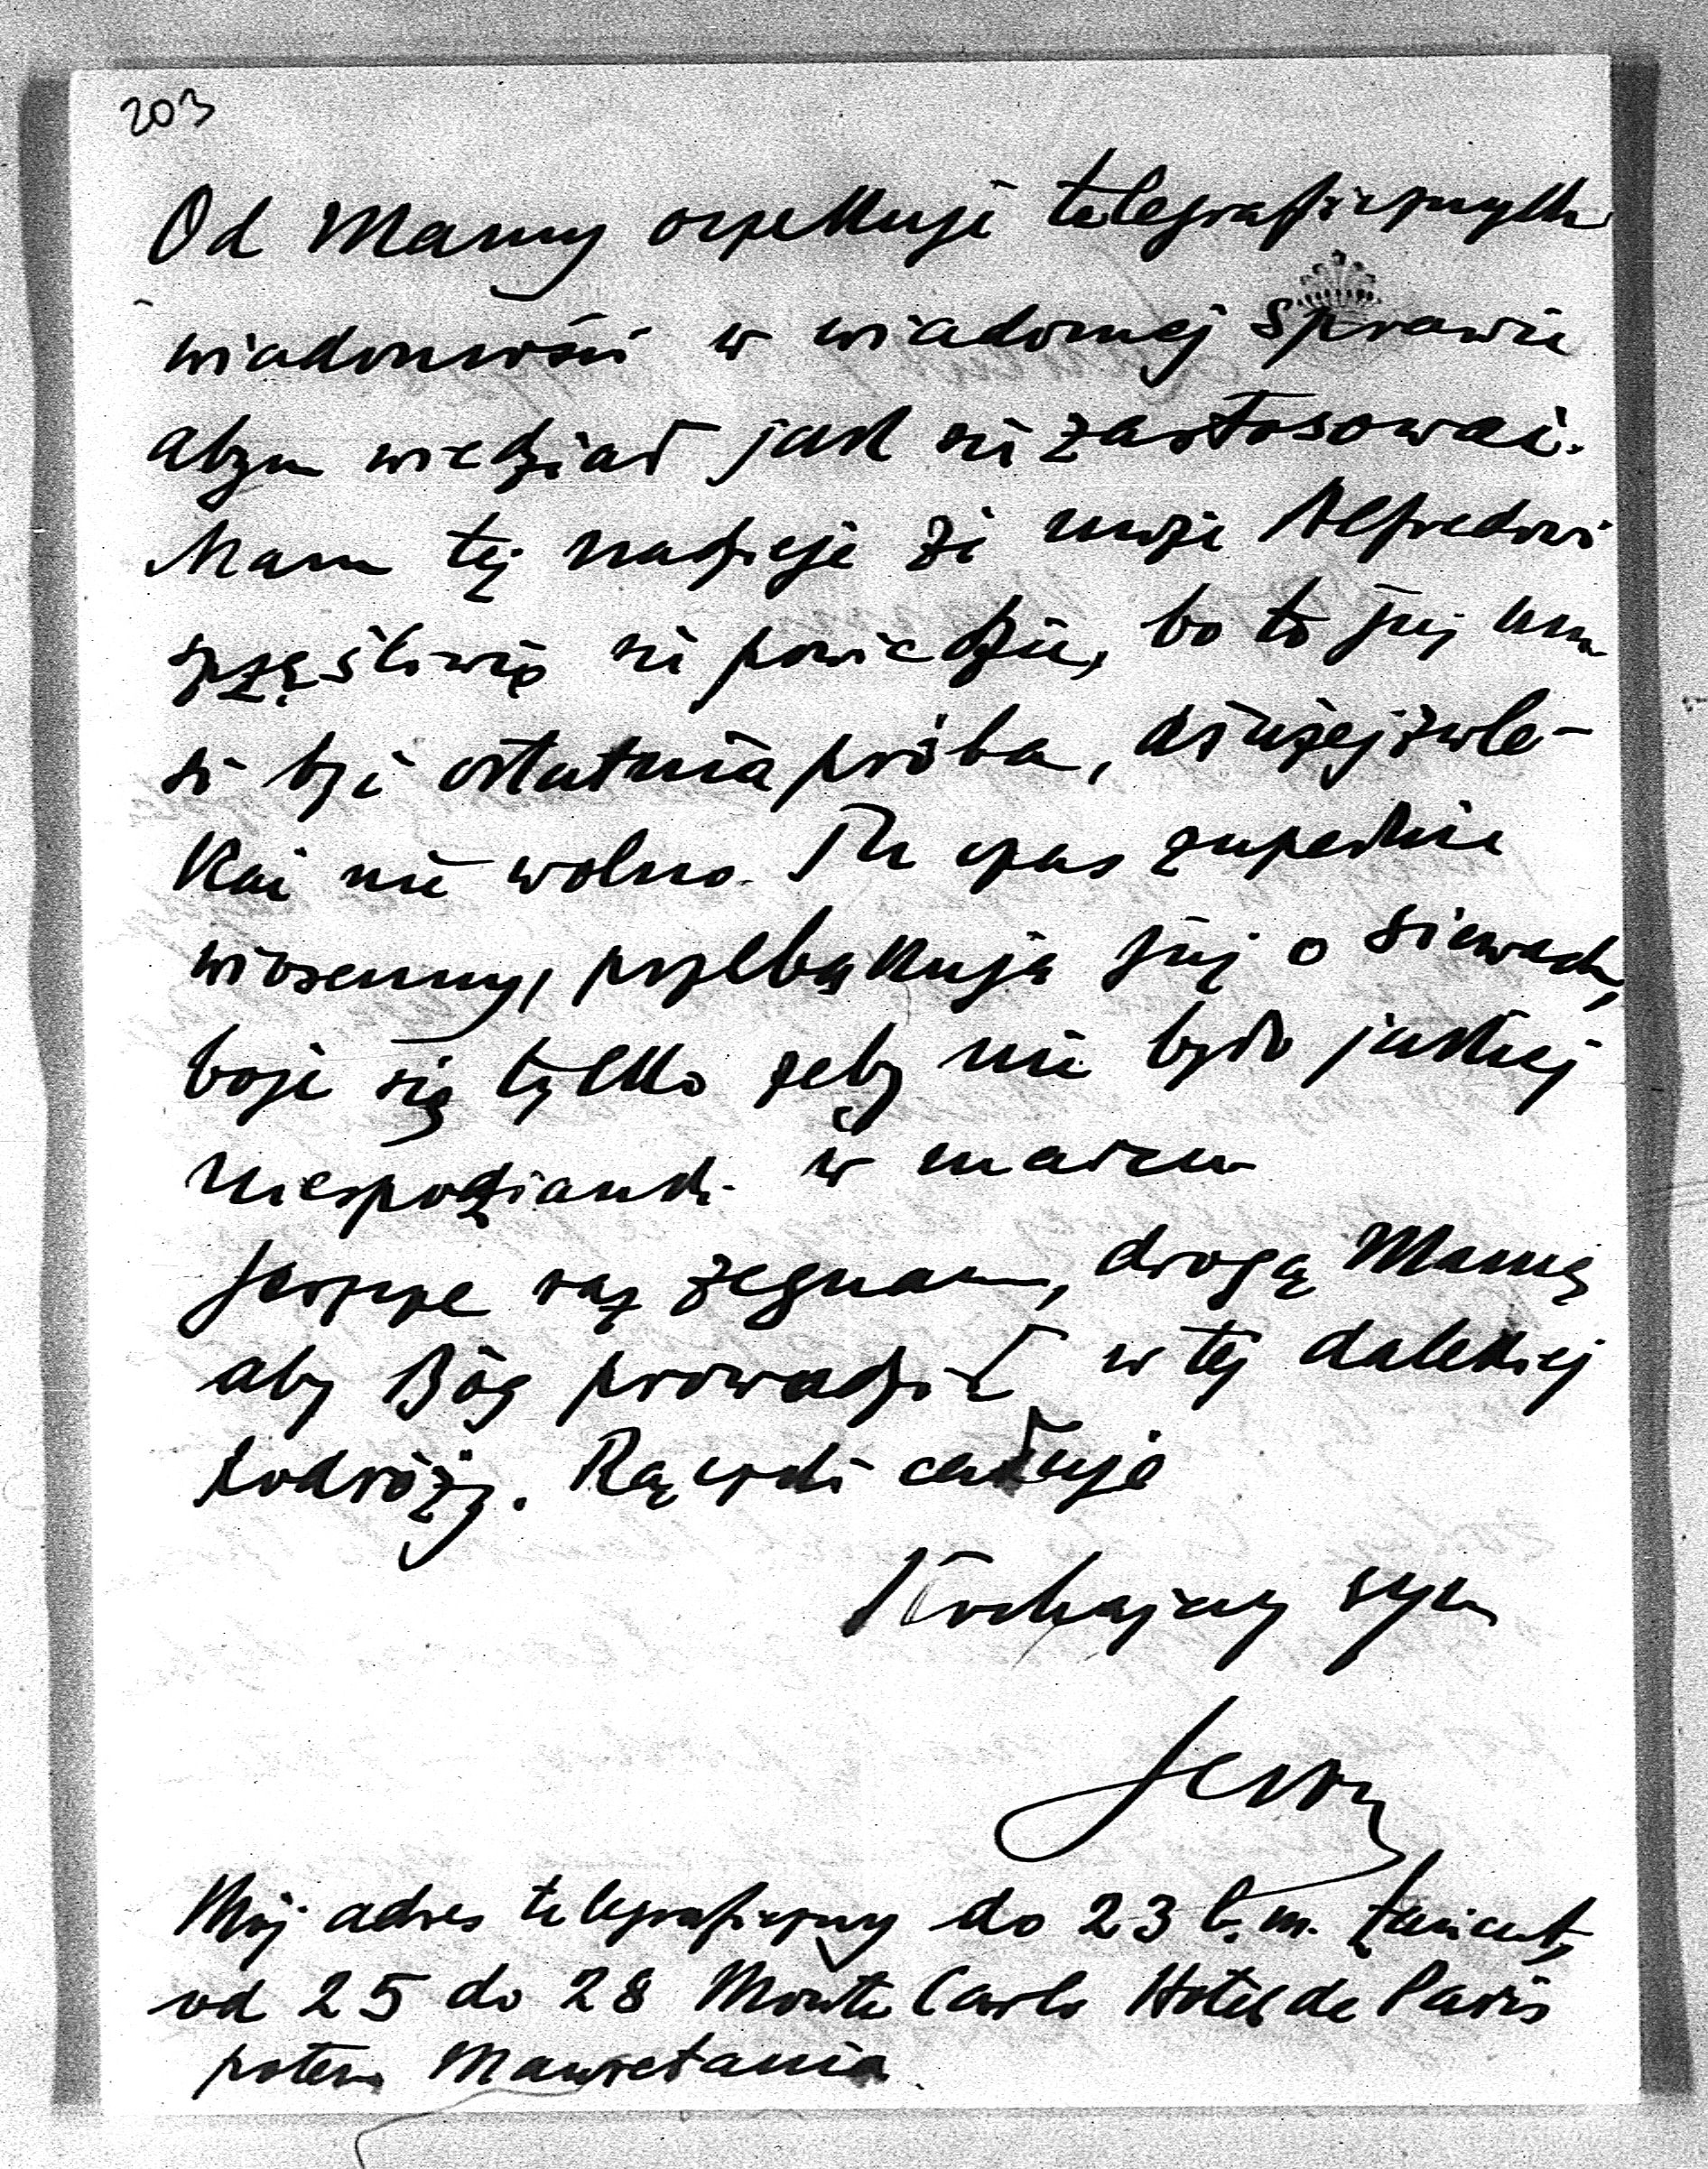 203
Od Mamy oczekuję telegraficznych
wiadomości w wiadomej sprawie
abym wiedział jak się zastosować.
Mam tę nadzieję że może Alfredowi
szczęśliwie się powiedzie, bo to już mu
si być ostatnia próba, dłużej zwle-
kać nie wolno. Tu czas zupełnie
wiosenny, przebąkują już o siewach,
boję się tylko żeby nie było jakiej
niespodzianki w marcu
Jeszcze raz żegnam, drogą Mamę
aby Bóg prowadził w tej dalekiej
podróży. Rączki całuję
Kochający syn
Jerzy
Mój adres telegraficzny do 23 b. m. Łańcut,
od 25 do 28 Monte Carlo Hotel de Paris
potem Mauretania